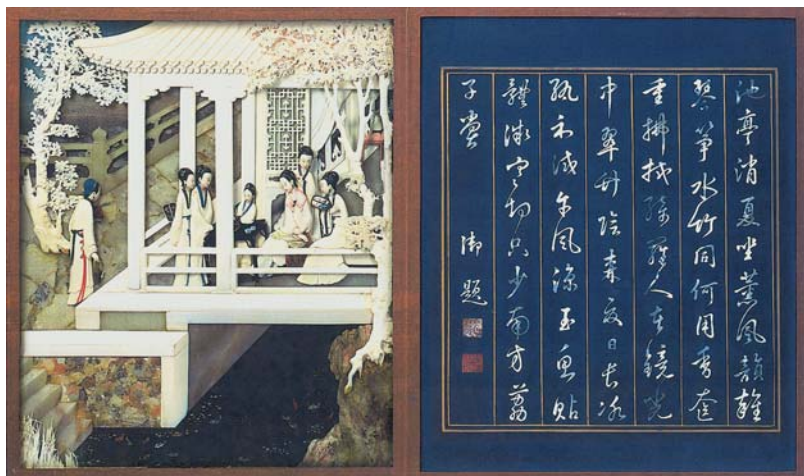 池亭消夏坐薰風韻雜
琴箏水竹同何用香奩
重拂拭綺羅人在鏡光
中翠竹陰森夏日長冰
紈減午風涼玉魚貼
體只少南方荔
子嘗 御題